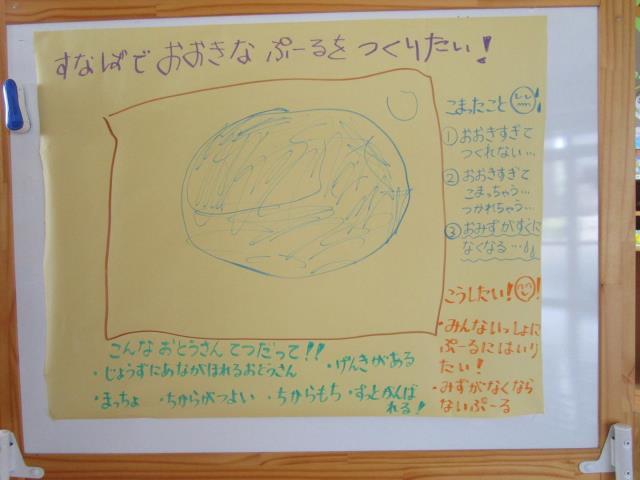 すなばで おおきな ぷーるを つくりたい!
こまったこと
① おおきすぎて
つくれない…
② おおきすぎて
こまっちゃう…
つかれちゃう…
③ おみずがすぐに
なくなる…
こうしたい!!
・みんないっしょに
ぷーるにはいり
たい!
・みずがなくなら
ないぷーる
こんな おとうさん てつだって!!
・じょうずにあながほれるおとうさん
・げんきがある
・まっちょ ・ちからがつよい ・ちからもち ・ずっとがんば
れる!